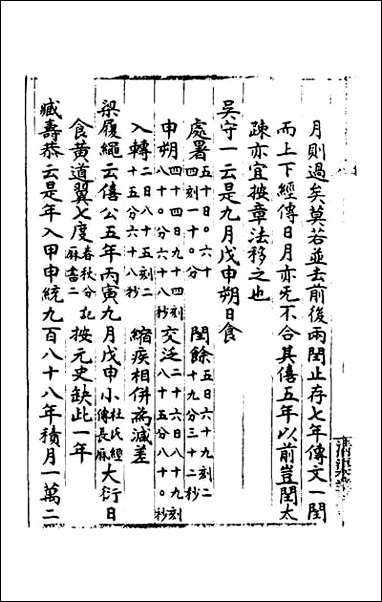 月則過矣莫若並去前後兩閏止存七年傳文一閏
而上下經傳日月亦无不合其僖五年以前豈閏太
疎亦宜按章法移之也
吳守一云是九月戊申朔日食
處署五十日。六十四刻一十。分 閏餘五日六十九刻二十九分三十二秒
申朔四十四日九十四刻八十。分六十八秒 交泛二十六日八十九刻八十。分五十八秒
入轉二日八十五刻二十五分六十八秒 縮疾相併為減差
梁履繩云僖公五年丙寅九月戊申小杜氏經傳長麻大衍日
食黃道翼七度春秋分記麻書二按元史缺此一年
臧壽恭云是年入甲申統九百八十八年積月一萬二